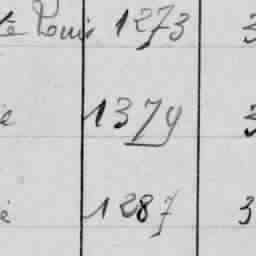 Louis 1273 3
1379 3
1287 3